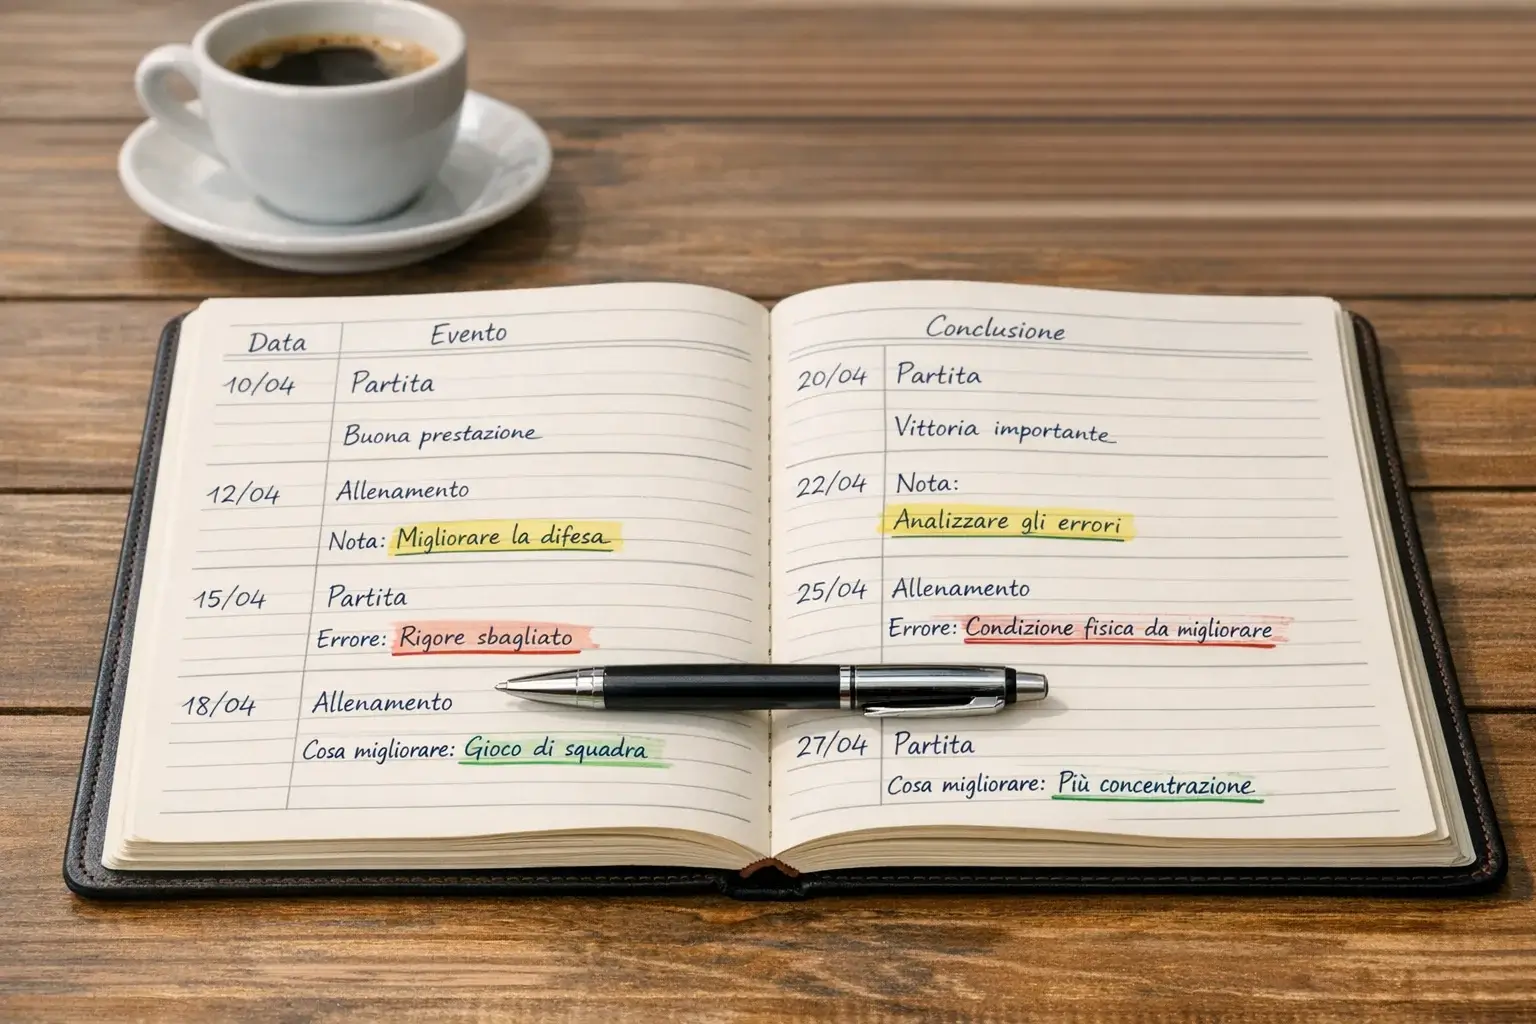 Data Evento
10/04 Partita
Buona prestazione
12/04 Allenamento
Nota: Migliorare la difesa
15/04 Partita
Errore: Rigore sbagliato
18/04 Allenamento
Cosa migliorare: Gioco di squadra
Conclusione
20/04 Partita
Vittoria importante
22/04 Nota:
Analizzare gli errori
25/04 Allenamento
Errore: Condizione fisica da migliorare
27/04 Partita
Cosa migliorare: Più concentrazione